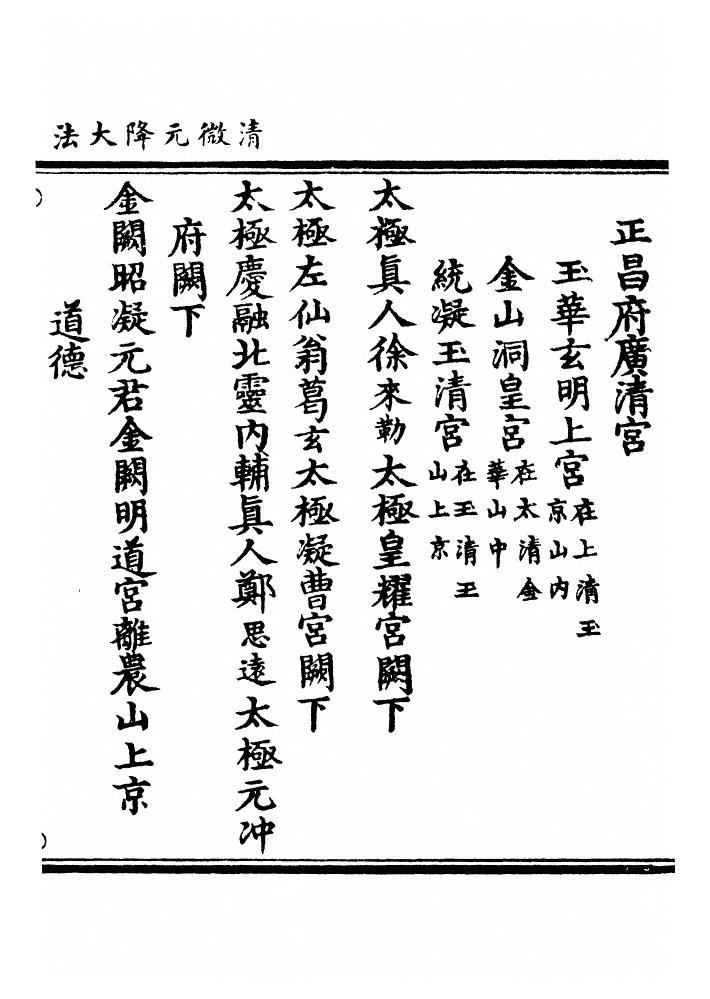 清微元降大法
正昌府廣清宮
玉華玄明上宮在上清玉京山內
金山洞皇宮在太清金華山中
統凝玉清宮在玉清玉山上京
太極眞人徐來勒太極皇耀宮闕下
太極左仙翁葛玄太極凝曹宮闕下
太極慶融北靈內輔眞人鄭思遠太極元冲
府闕下
金闕昭凝元君金闕明道宮離農山上京
道德